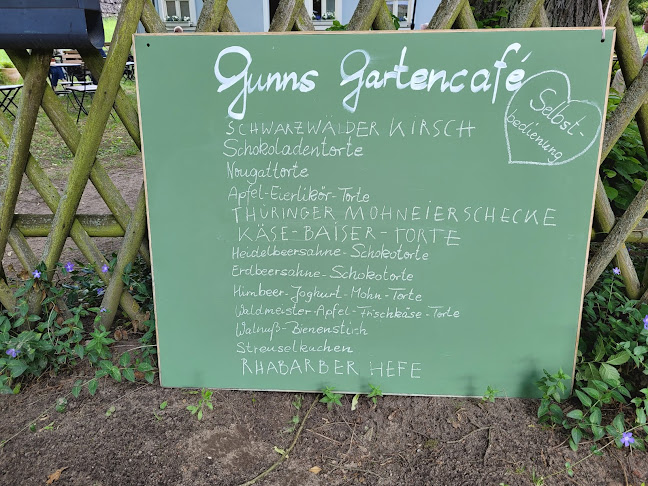 Gunns Gartencafé
Selbst-
bedienung
SCHWARZWÄLDER KIRSCH
Schokoladentorte
Nougattorte
Apfel-Eierlikör-Torte
THÜRINGER MOHNEIERSCHECKE
KÄSE-BAISER-TORTE
Heidelbeersahne-Schokotorte
Erdbeersahne-Schokotorte
Himbeer-Joghurt-Mohn-Torte
Waldmeister-Apfel-Frischkäse-Torte
Walnuß-Bienenstich
Streuselkuchen
RHABARBER HEFE